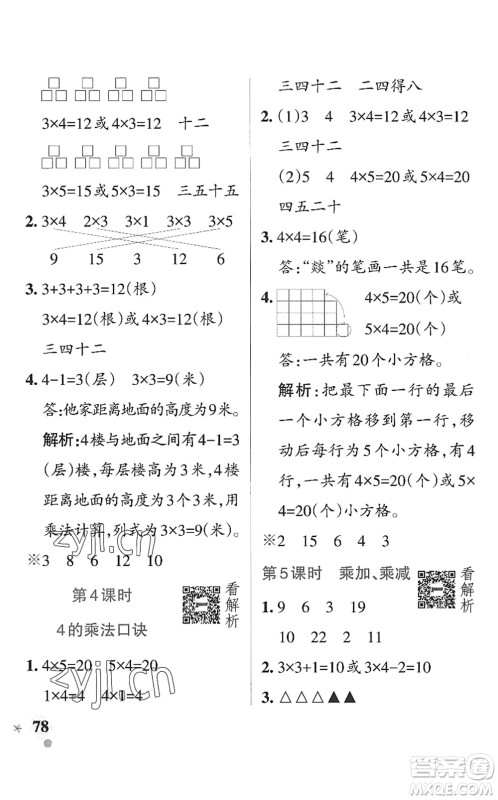 3×4=12或4×3=12 十二
3×5=15或5×3=15 三五十五
2. 3×4 2×3 3×1 3×3 3×5
9 15 3 12 6
3. 3+3+3+3=12(根)
3×4=12(根)或4×3=12(根)
三四十二
4. 4-1=3(层) 3×3=9(米)
答:他家距离地面的高度为9米。
解析:4楼与地面之间有4-1=3
(层)楼,每层楼高度为3米,4楼
距离地面的高度为3个3米,用
乘法计算,列式为3×3=9(米)。
※3 8 6 12 10
第4课时
4的乘法口诀
看解析
1. 4×5=20 5×4=20
1×4=4 4×1=4
78
三四十二 二四得八
2. (1)3 4 3×4=12或4×3=12
三四十二
(2)5 4 4×5=20或5×4=20
四五二十
3. 4×4=16(笔)
答:“燚”的笔画一共是16笔。
4. 4×5=20(个)或
5×4=20(个)
答:一共有20个小方格。
解析:把最下面一行最后的
一个小方格移到第一行,移
动后每行为5个小方格,有4
行,用乘法计算,列式为5×
4=20(个)或4×5=20(个),
一共有20个小方格。
※2 15 6 4 3
第5课时 乘加、乘减
看解析
1. 9 10 18 19
10 22 11 8
2. 3×3+1=10或3×4-2=10
3. △△△▲▲
zyji.cn
zyji.cn
答案圈
MXQE.COM